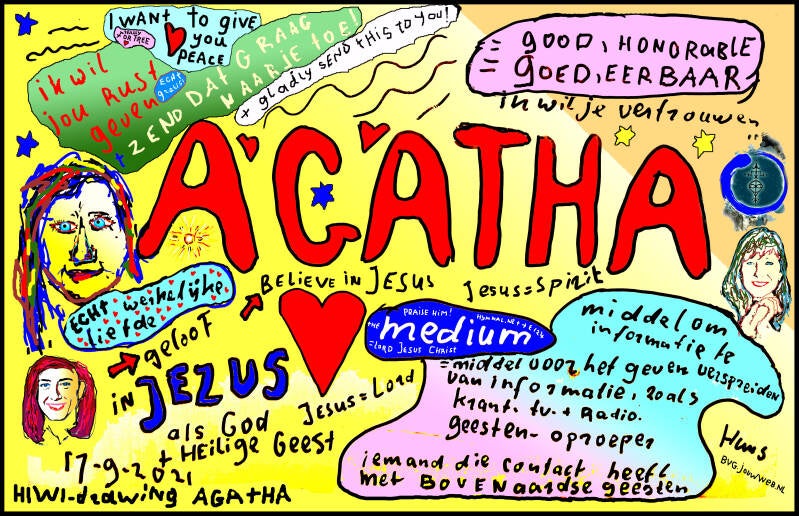 I WANT to give
you
PEACE
OR TREE
ik wil
jou RUST
geven
ECHT
+ ZEND DAT GRAAG
NAAR JE TOE!
+ gladly SEND THIS TO YOU!
= GOOD, HONORABLE
= GOED, EERBAAR
in wil je vertrouwen
AGATHA
BELIEVE IN JESUS
Jesus = Spirit
ECHT werkelijke
liefde
geloof
in JEZUS
als God
+ HEILIGE GEEST
Jesus = Lord
PRAISE HIM!
the medium
= LORD JESUS CHRIST
middel om
informatie te
verspreiden
= middel voor het geven
van informatie, zoals
krant. tv. + Radio.
geesten-oproeper
iemand die contact heeft
met BOVENaardse geesten
17-9-2021
HIWI-drawing AGATHA
Huws
BVG.JOUWWEB.NL